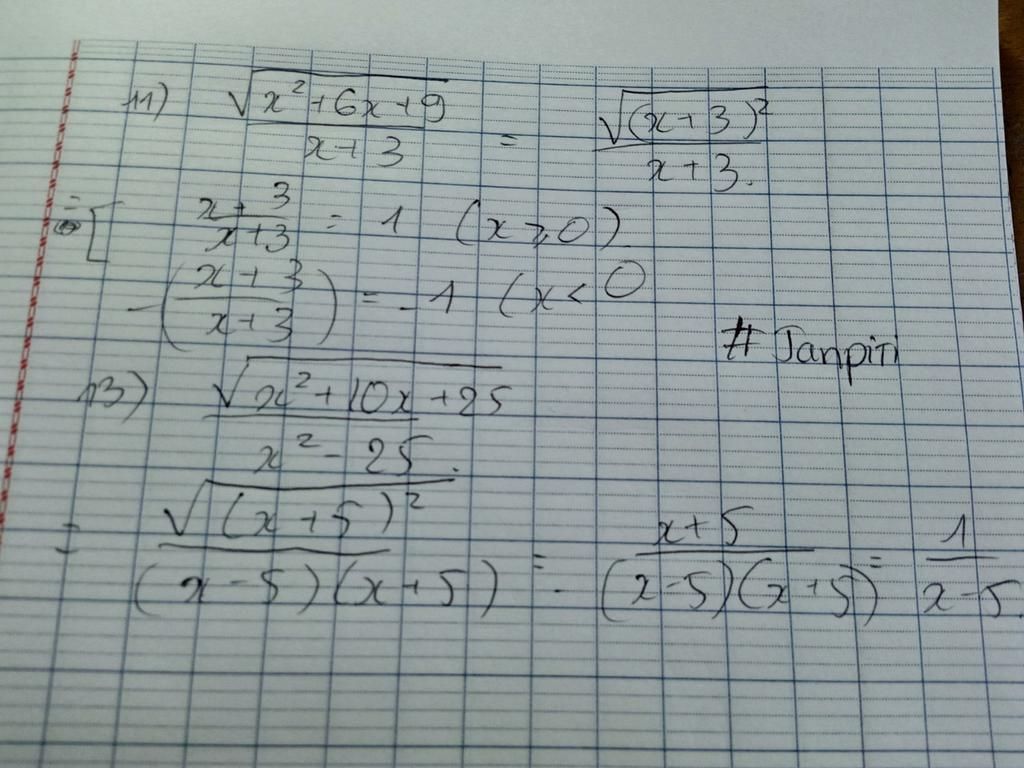 11) √(x²+6x+9) / (x+3) = √((x+3)²) / (x+3).
= [ (x+3)/(x+3) = 1 (x ≥ 0)
-((x+3)/(x+3)) = -1 (x < 0
# Janpiti
13) √(x²+10x+25) / (x²-25).
= √((x+5)²) / ((x-5)(x+5)) = (x+5) / ((x-5)(x+5)) = 1/(x-5).